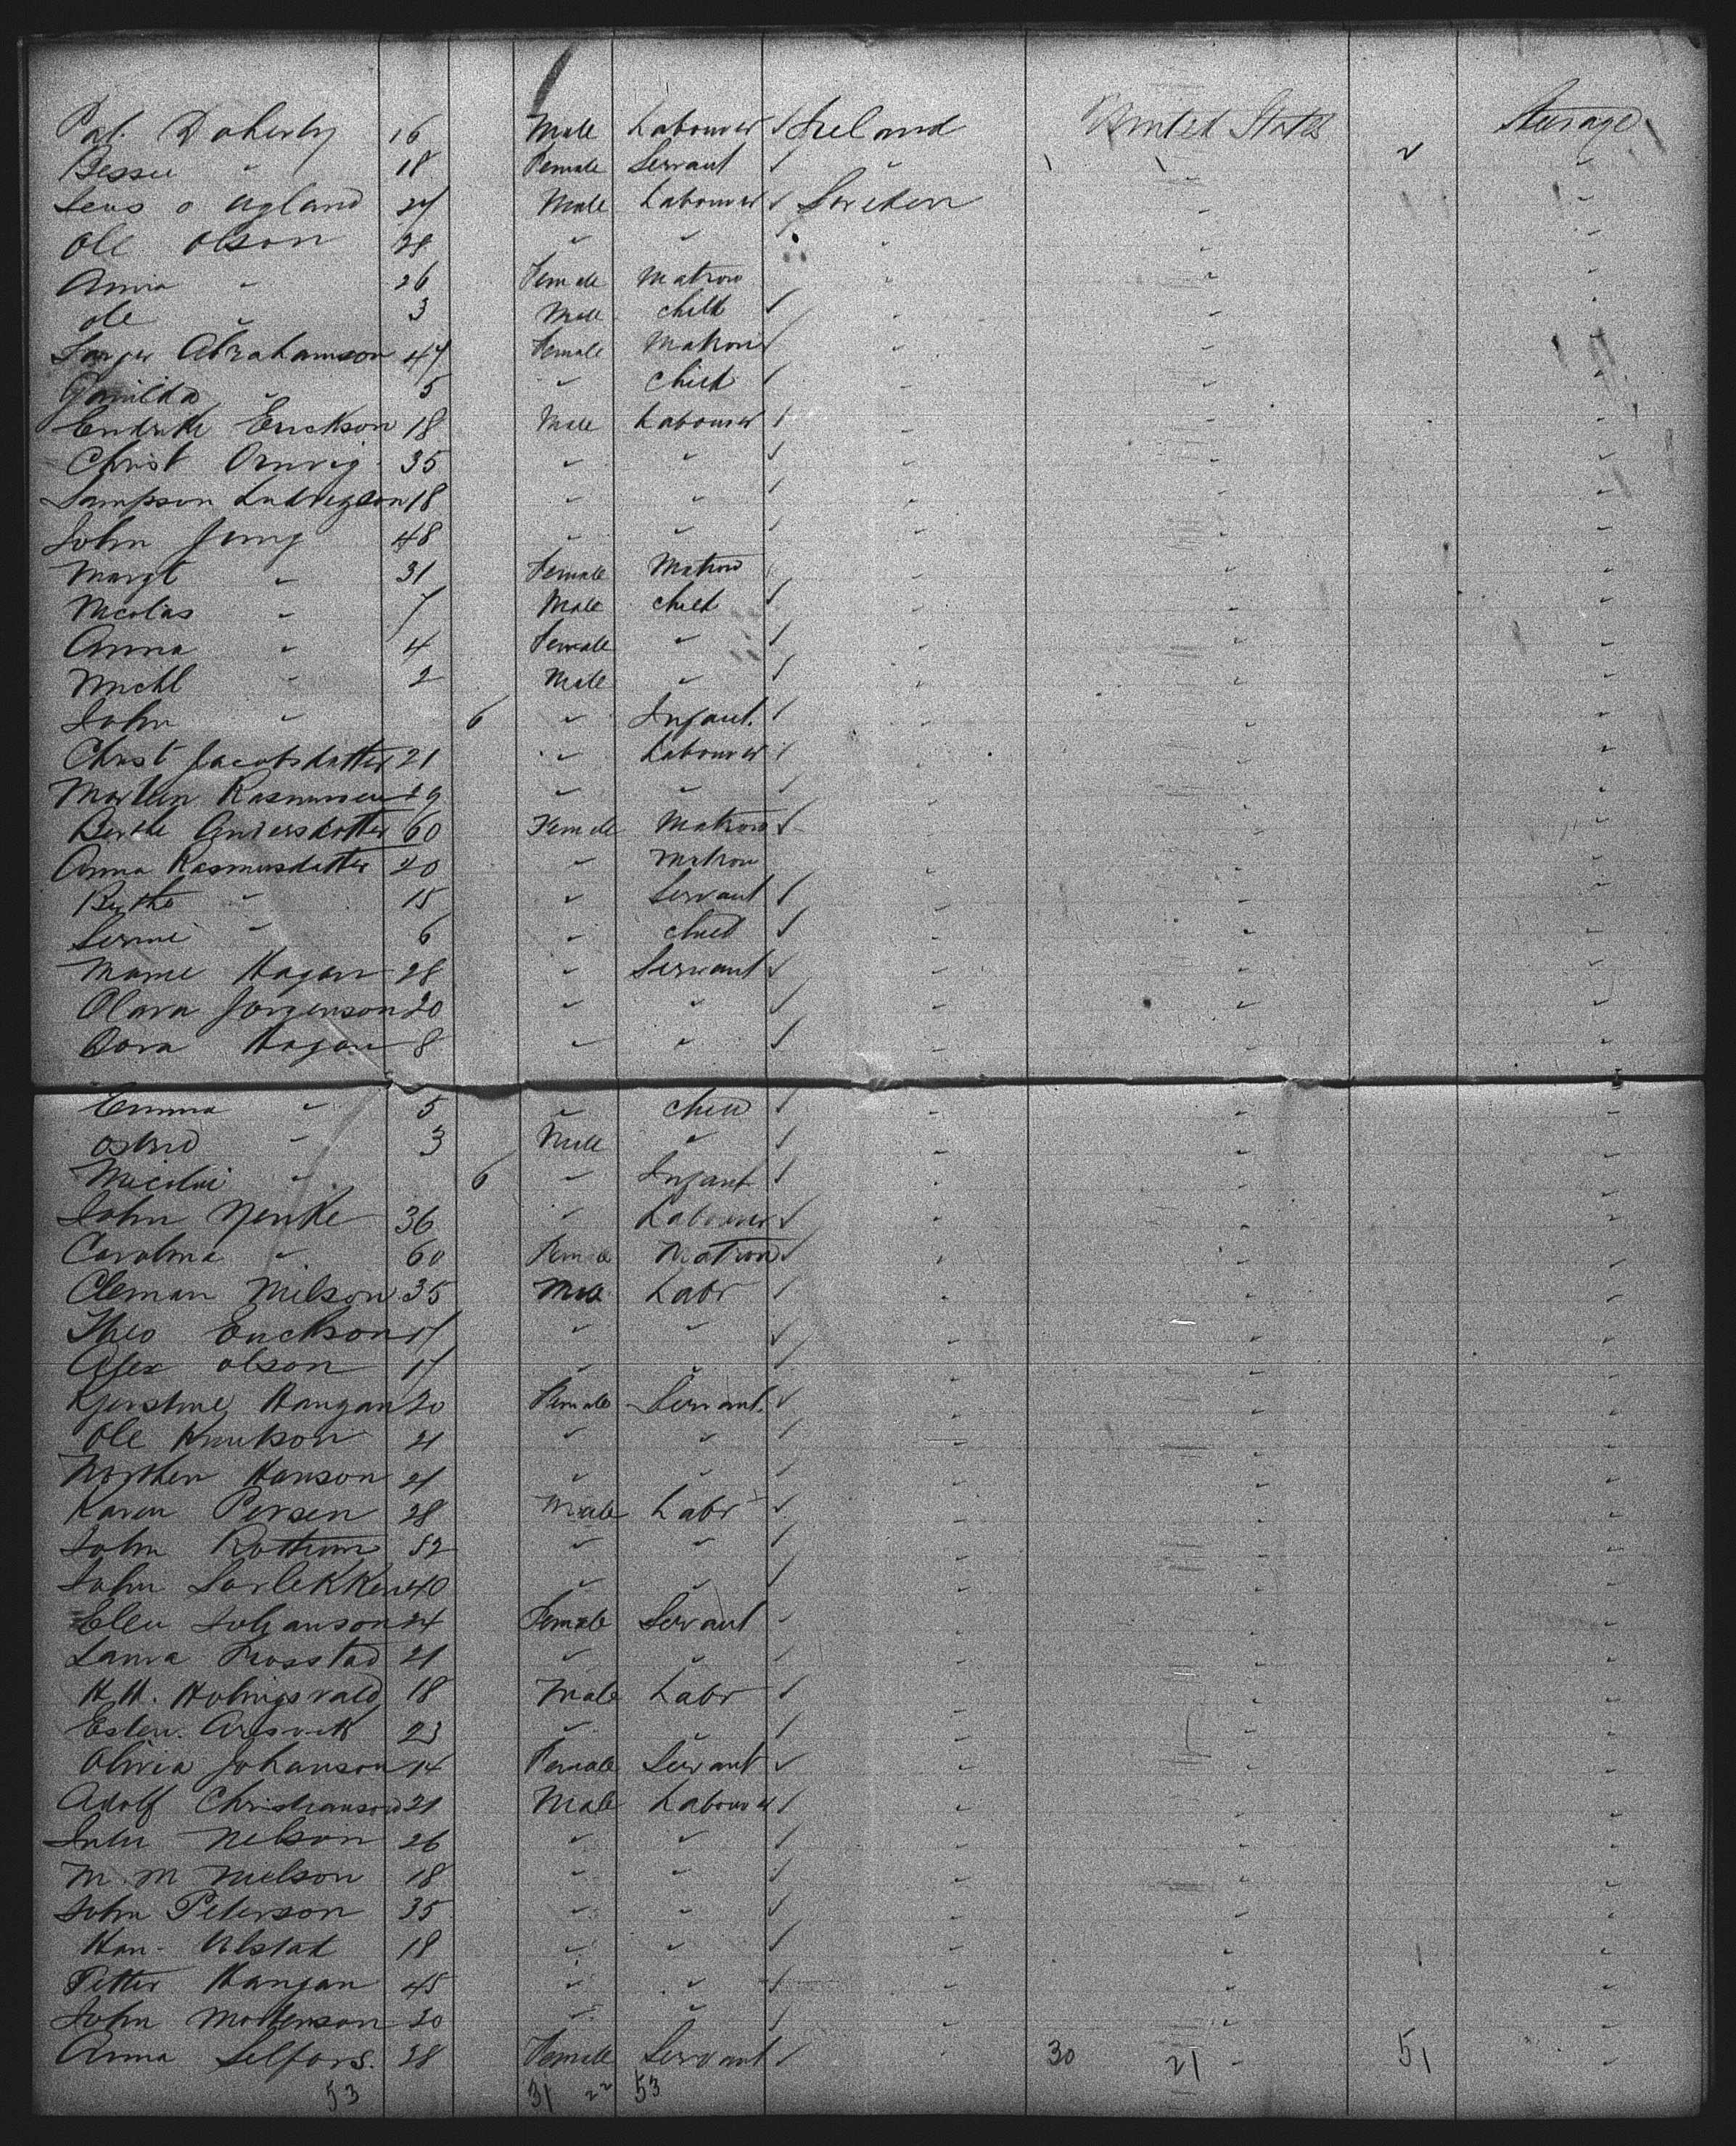 Pat. Doherty 16 Male Labourer Ireland United States Steerage
Bessie " 18 Female Servant " " "
Lens o Ugland 24 Male Labourer Sweden " "
Ole Olson 28 " " " " "
Anna " 26 Female Matron " " "
Ole " 3 Male Child " " "
Abrahamson 47 Female Matron " " "
Gunilda " 5 " Child " " "
Endrike Erickson 18 Male Labourer " " "
Christ Ornvig 35 " " " " "
Sampson Ludvigson 18 " " " " "
John Jung 48 " " " " "
Margt " 31 Female Matron " " "
Nicolas " 7 Male Child " " "
Anna " 4 Female " " " "
Michl " 2 Male " " " "
John " 6 " Infant. " " "
Christ Jacobsdatter 21 " Labourer " " "
Martin Rasmussen 29 " " " " "
Berthe Andersdatter 60 Female Matron " " "
Anna Rasmusdatter 40 " Matron " " "
Berthe " 15 " Servant " " "
" 6 " Child " " "
Marne Hagan 28 " Servant " " "
Olava Jorgenson 20 " " " " "
Dora Hagan 8 " " " " "
Emma " 5 " Child " " "
Ostrid " 3 Male " " " "
Nicolai " 6 " Infant " " "
John Nenke 36 " Labourer " " "
Carolina " 60 Female Matron " " "
Cleman Nielson 35 Male Labr " " "
Theo Erickson 17 " " " " "
Alex Olson 17 " " " " "
Kjerstine Haugan 20 Female Servant. " " "
Ole Knutson 21 " " " " "
Morthen Hanson 21 " " " " "
Karen Persen 28 Male Labr " " "
John Rottum 52 " " " " "
John Sorlekken 40 " " " " "
Elen Johanson 24 Female Servant " " "
Laura Trosstad 21 " " " " "
H. H. Holmgsvald 18 Male Labr " " "
Esten. Aresvik 23 " " " " "
Olivia Johanson 14 Female Servant " " "
Adolf Christianson 21 Male Labourer " " "
Nelson 26 " " " " "
M. M Nielson 18 " " " " "
John Peterson 35 " " " " "
Han- Ulstad 18 " " " " "
Petter Haugan 45 " " " " "
John Mortenson 20 " " " " "
Anna Selfors. 28 Female Servant " 30 21 " 51 "
53 31 22 53